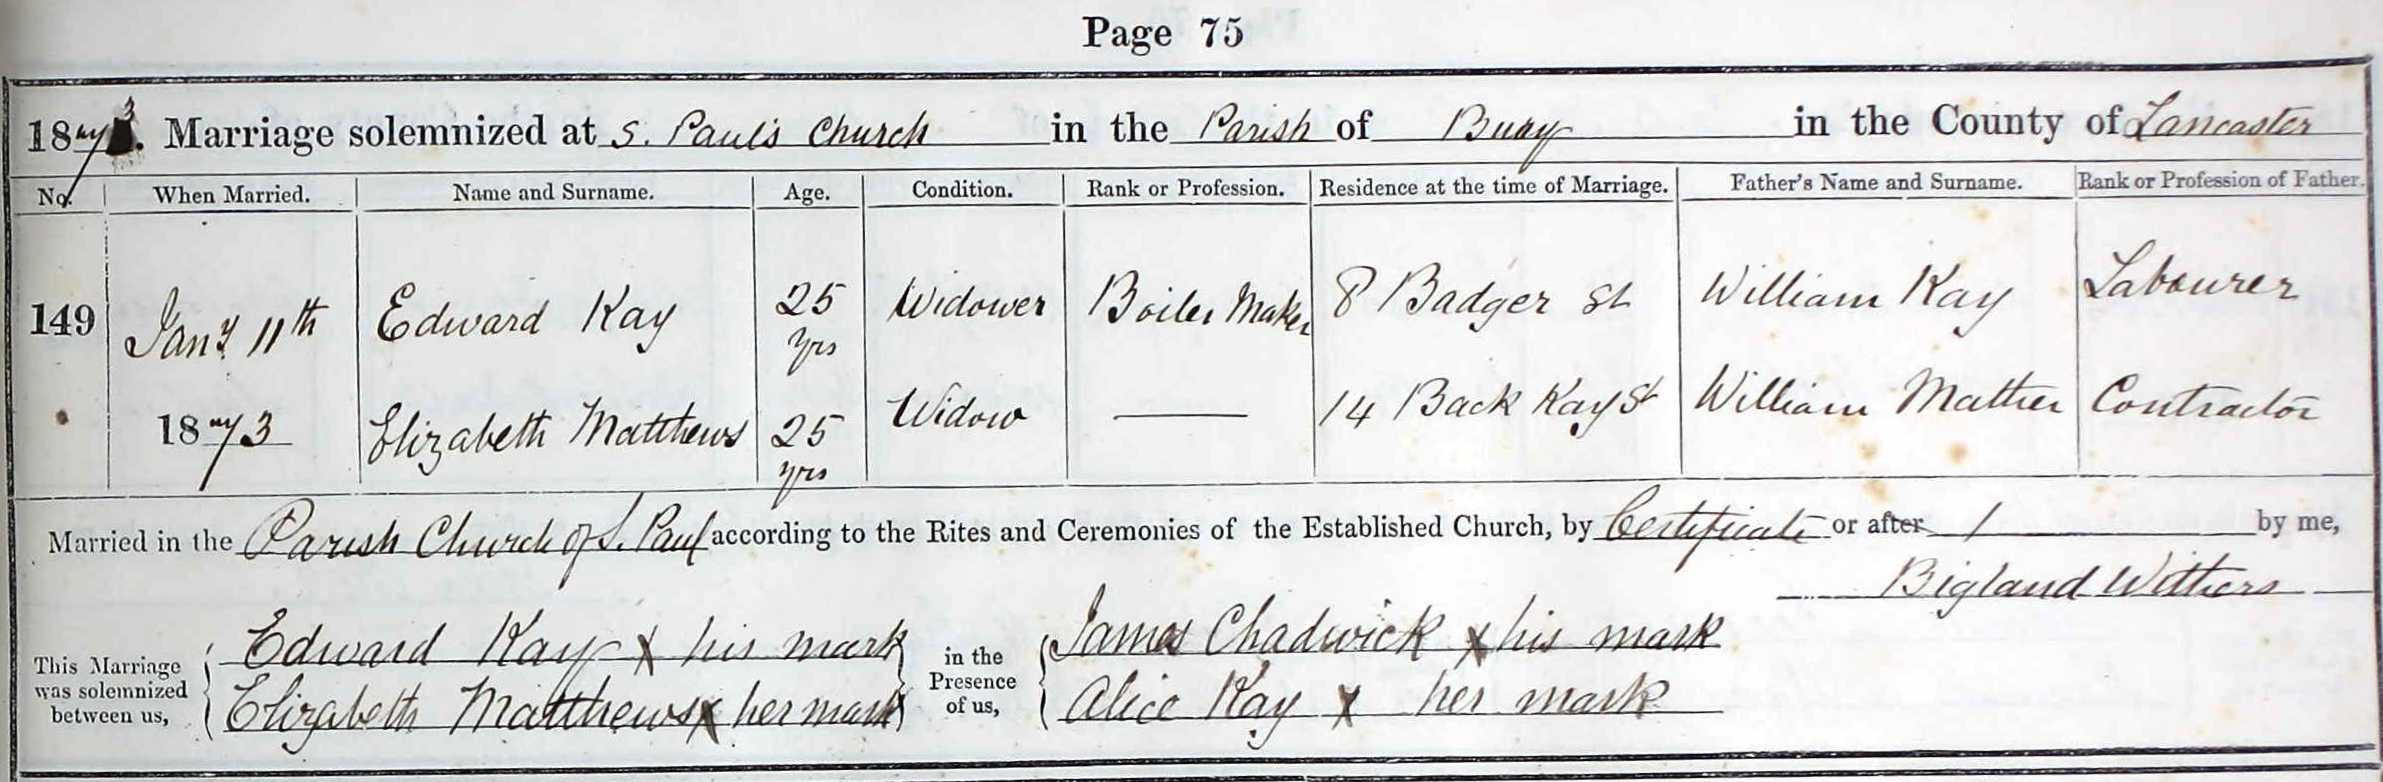 Page 75
1873. Marriage solemnized at S. Paul's Church in the Parish of Bury in the County of Lancaster
No. When Married. Name and Surname. Age. Condition. Rank or Profession. Residence at the time of Marriage. Father's Name and Surname. Rank or Profession of Father.
149 Jany 11th Edward Kay 25 yrs Widower Boiler Maker 8 Badger St William Kay Labourer
1873 Elizabeth Matthews 25 yrs Widow — 14 Back Kay St William Mather Contractor
Married in the Parish Church of S. Paul according to the Rites and Ceremonies of the Established Church, by Certificate or after / by me,
Bigland Withers
This Marriage was solemnized between us, Edward Kay X his mark in the Presence of us, James Chadwick X his mark
Elizabeth Matthews X her mark Alice Kay X her mark